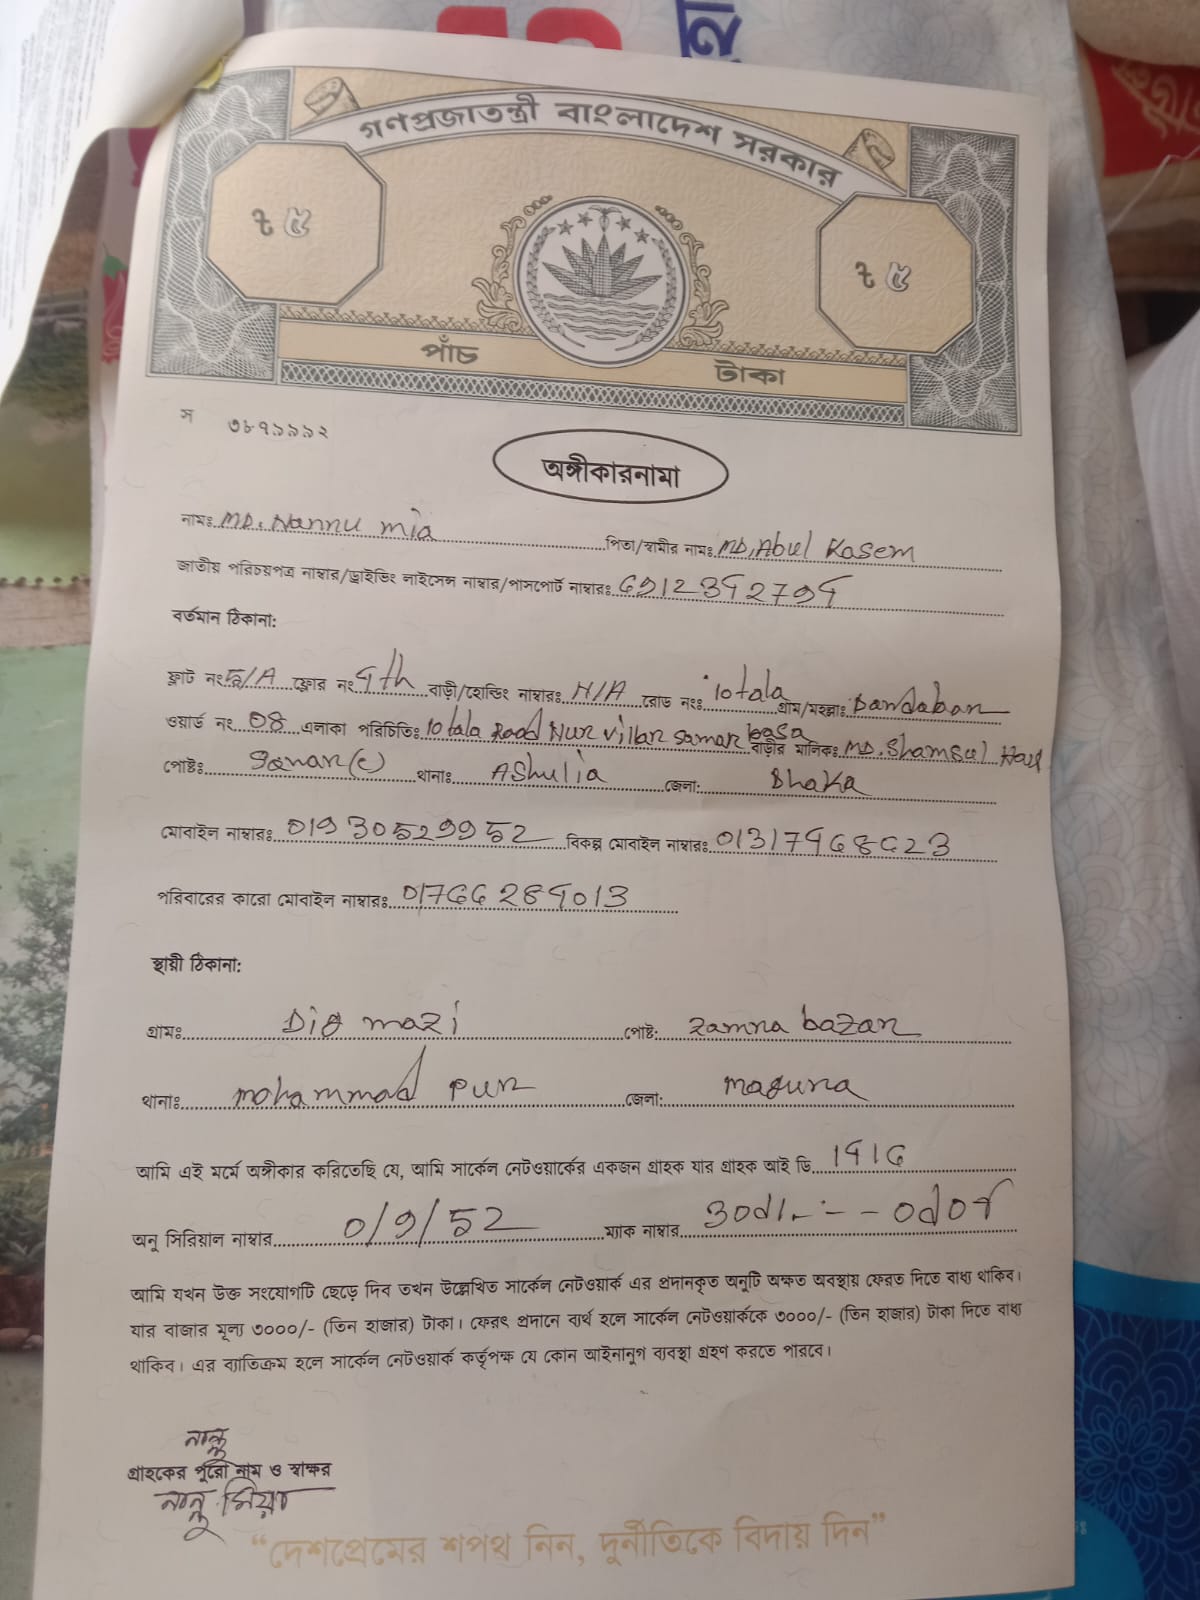 গণপ্রজাতন্ত্রী বাংলাদেশ সরকার
৳ ৫ ৳ ৫
পাঁচ টাকা
স ৩৮৭১১১২
অঙ্গীকারনামা
নামঃ MD. Nannu mia পিতা/স্বামীর নামঃ MD. Abul Kasem
জাতীয় পরিচয়পত্র নাম্বার/ড্রাইভিং লাইসেন্স নাম্বার/পাসপোর্ট নাম্বারঃ
বর্তমান ঠিকানা:
ফ্লাট নং 5/A ফ্লোর নং 4th বাড়ী/হোল্ডিং নাম্বারঃ N/A রোড নংঃ 10 tala গ্রাম/মহল্লাঃ Dandabar
ওয়ার্ড নং 08 এলাকা পরিচিতিঃ 10 tala Road Nur villar samar basa বাড়ীর মালিকঃ MD. Shamsul
পোষ্টঃ থানাঃ AShulia জেলা: Dhaka
মোবাইল নাম্বারঃ 01930529952 বিকল্প মোবাইল নাম্বারঃ
পরিবারের কারো মোবাইল নাম্বারঃ
স্থায়ী ঠিকানা:
গ্রামঃ Dig mazi পোষ্ট: ramna bazar
থানাঃ mohammad pur জেলা: magura
আমি এই মর্মে অঙ্গীকার করিতেছি যে, আমি সার্কেল নেটওয়ার্কের একজন গ্রাহক যার গ্রাহক আই ডি
অনু সিরিয়াল নাম্বার 0/9/52 ম্যাক নাম্বার
আমি যখন উক্ত সংযোগটি ছেড়ে দিব তখন উল্লেখিত সার্কেল নেটওয়ার্ক এর প্রদানকৃত অনুটি অক্ষত অবস্থায় ফেরত দিতে বাধ্য থাকিব।
যার বাজার মূল্য ৩০০০/- (তিন হাজার) টাকা। ফেরৎ প্রদানে ব্যর্থ হলে সার্কেল নেটওয়ার্ককে ৩০০০/- (তিন হাজার) টাকা দিতে বাধ্য
থাকিব। এর ব্যাতিক্রম হলে সার্কেল নেটওয়ার্ক কর্তৃপক্ষ যে কোন আইনানুগ ব্যবস্থা গ্রহণ করতে পারবে।
নান্নু
গ্রাহকের পূরো নাম ও স্বাক্ষর
নান্নু মিয়া
“দেশপ্রেমের শপথ নিন, দুর্নীতিকে বিদায় দিন”